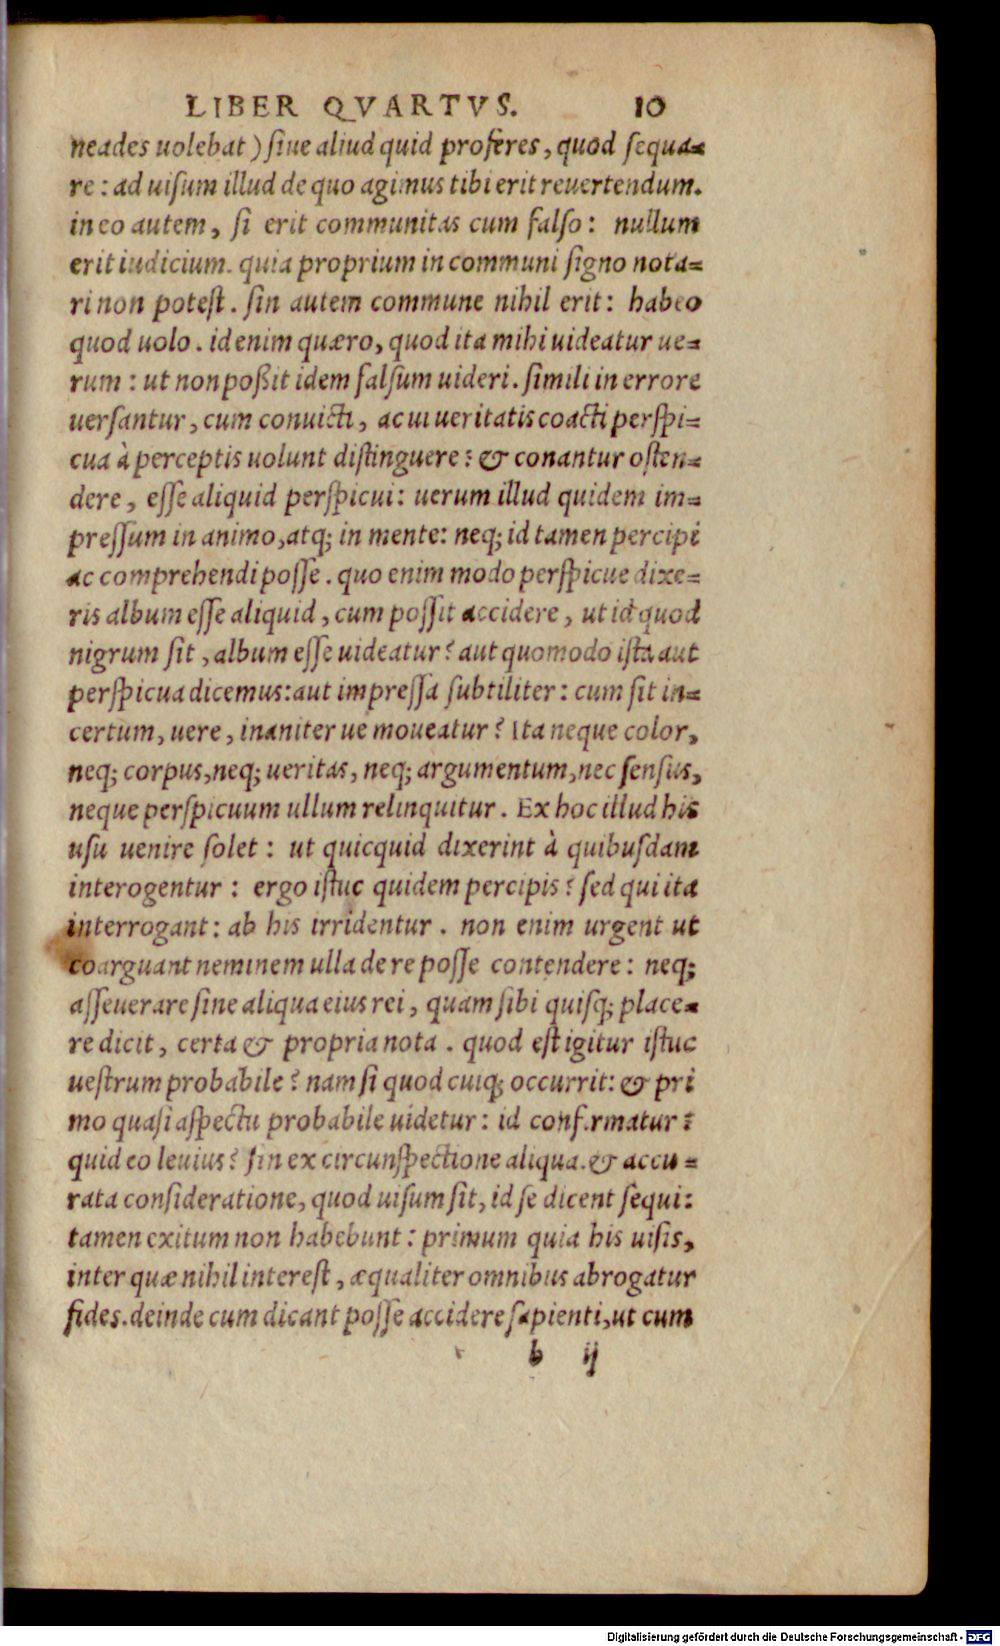 LIBER QVARTVS. 10
neades uolebat) siue aliud quid proferes, quod sequa=
re: ad uisum illud de quo agimus tibi erit reuertendum.
in eo autem, si erit communitas cum falso: nullum
erit iudicium. quia proprium in communi signo nota=
ri non potest. sin autem commune nihil erit: habeo
quod uolo. id enim quæro, quod ita mihi uideatur ue=
rum: ut non poßit idem falsum uideri. simili in errore
uersantur, cum conuicti, ac ui ueritatis coacti perspi=
cua à perceptis uolunt distinguere: & conantur osten=
dere, esse aliquid perspicui: uerum illud quidem im=
pressum in animo, atq; in mente: neq; id tamen percipi
ac comprehendi posse. quo enim modo perspicue dixe=
ris album esse aliquid, cum possit accidere, ut id quod
nigrum sit, album esse uideatur? aut quomodo ista aut
perspicua dicemus: aut impressa subtiliter: cum sit in=
certum, uere, inaniter ue moueatur? Ita neque color,
neq; corpus, neq; ueritas, neq; argumentum, nec sensus,
neque perspicuum ullum relinquitur. Ex hoc illud his
usu uenire solet: ut quicquid dixerint à quibusdam
interogentur: ergo istuc quidem percipis? sed qui ita
interrogant: ab his irridentur. non enim urgent ut
coarguant neminem ulla de re posse contendere: neq;
asseuerare sine aliqua eius rei, quam sibi quisq; place=
re dicit, certa & propria nota. quod est igitur istuc
uestrum probabile? nam si quod cuiq; occurrit: & pri
mo quasi aspectu probabile uidetur: id conf.rmatur:
quid eo leuius? sin ex circunspectione aliqua. & accu=
rata consideratione, quod uisum sit, id se dicent sequi:
tamen exitum non habebunt: primum quia his uisis,
inter quæ nihil interest, æqualiter omnibus abrogatur
fides. deinde cum dicant posse accidere sapienti, ut cum
b ij
Digitalisierung gefördert durch die Deutsche Forschungsgemeinschaft - DFG